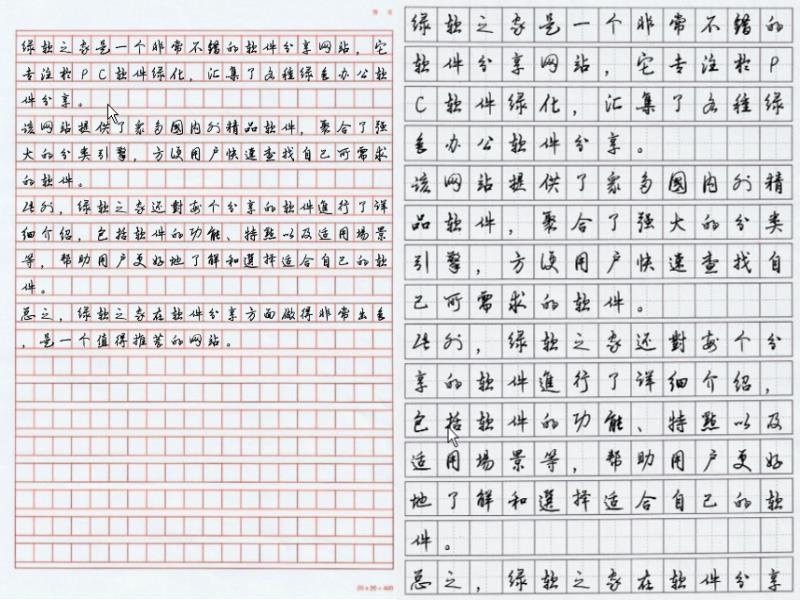 绿软之家是一个非常不错的软件分享网站，它
专注於PC软件绿化，汇集了各種绿色办公软
件分享。
该网站提供了衆多國内外精品软件，聚合了强
大的分类引擎，方便用户快速查找自己所需求
的软件。
此外，绿软之家还對每个分享的软件進行了详
细介绍，包括软件的功能、特點以及适用場景
等，帮助用户更好地了解和選择适合自己的软
件。
总之，绿软之家在软件分享方面做得非常出色
，是一个值得推荐的网站。
20×20=400
绿软之家是一个非常不错的
软件分享网站，它专注於P
C软件绿化，汇集了各種绿
色办公软件分享。
该网站提供了衆多國内外精
品软件，聚合了强大的分类
引擎，方便用户快速查找自
己所需求的软件。
此外，绿软之家还對每个分
享的软件進行了详细介绍，
包括软件的功能、特點以及
适用場景等，帮助用户更好
地了解和選择适合自己的软
件。
总之，绿软之家在软件分享